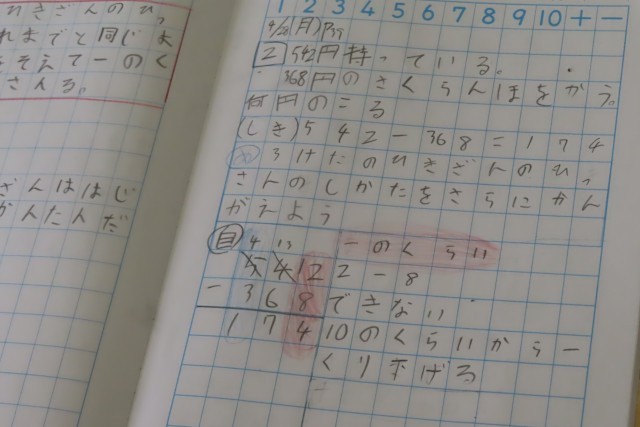 ひきざんのひっ
れまでと同じよ
をそえて一のく
さんする。
ざんははじ
かんたんだ
1 2 3 4 5 6 7 8 9 10 + −
(月)
2 542円持っている。
368円のさくらんぼをかう。
何円のこる
(しき) 542−368=174
め 3けたのひきざんのひっ
さんのしかたをさらにかん
がえよう
自 4 13 一のくらい
5 4 12 2−8
− 3 6 8 できない
1 7 4 10のくらいから一
くり下げる